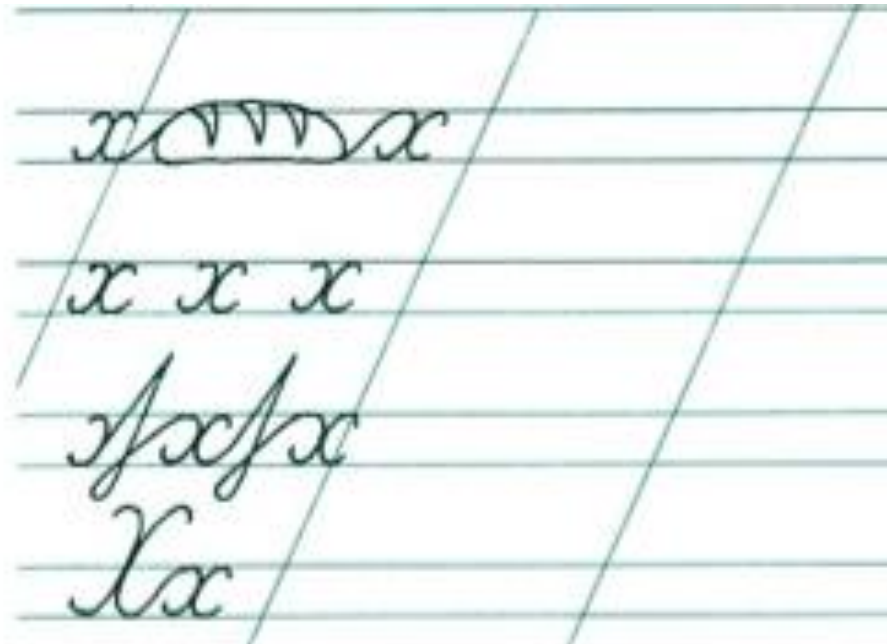 х х
х х х
х х х
Х х